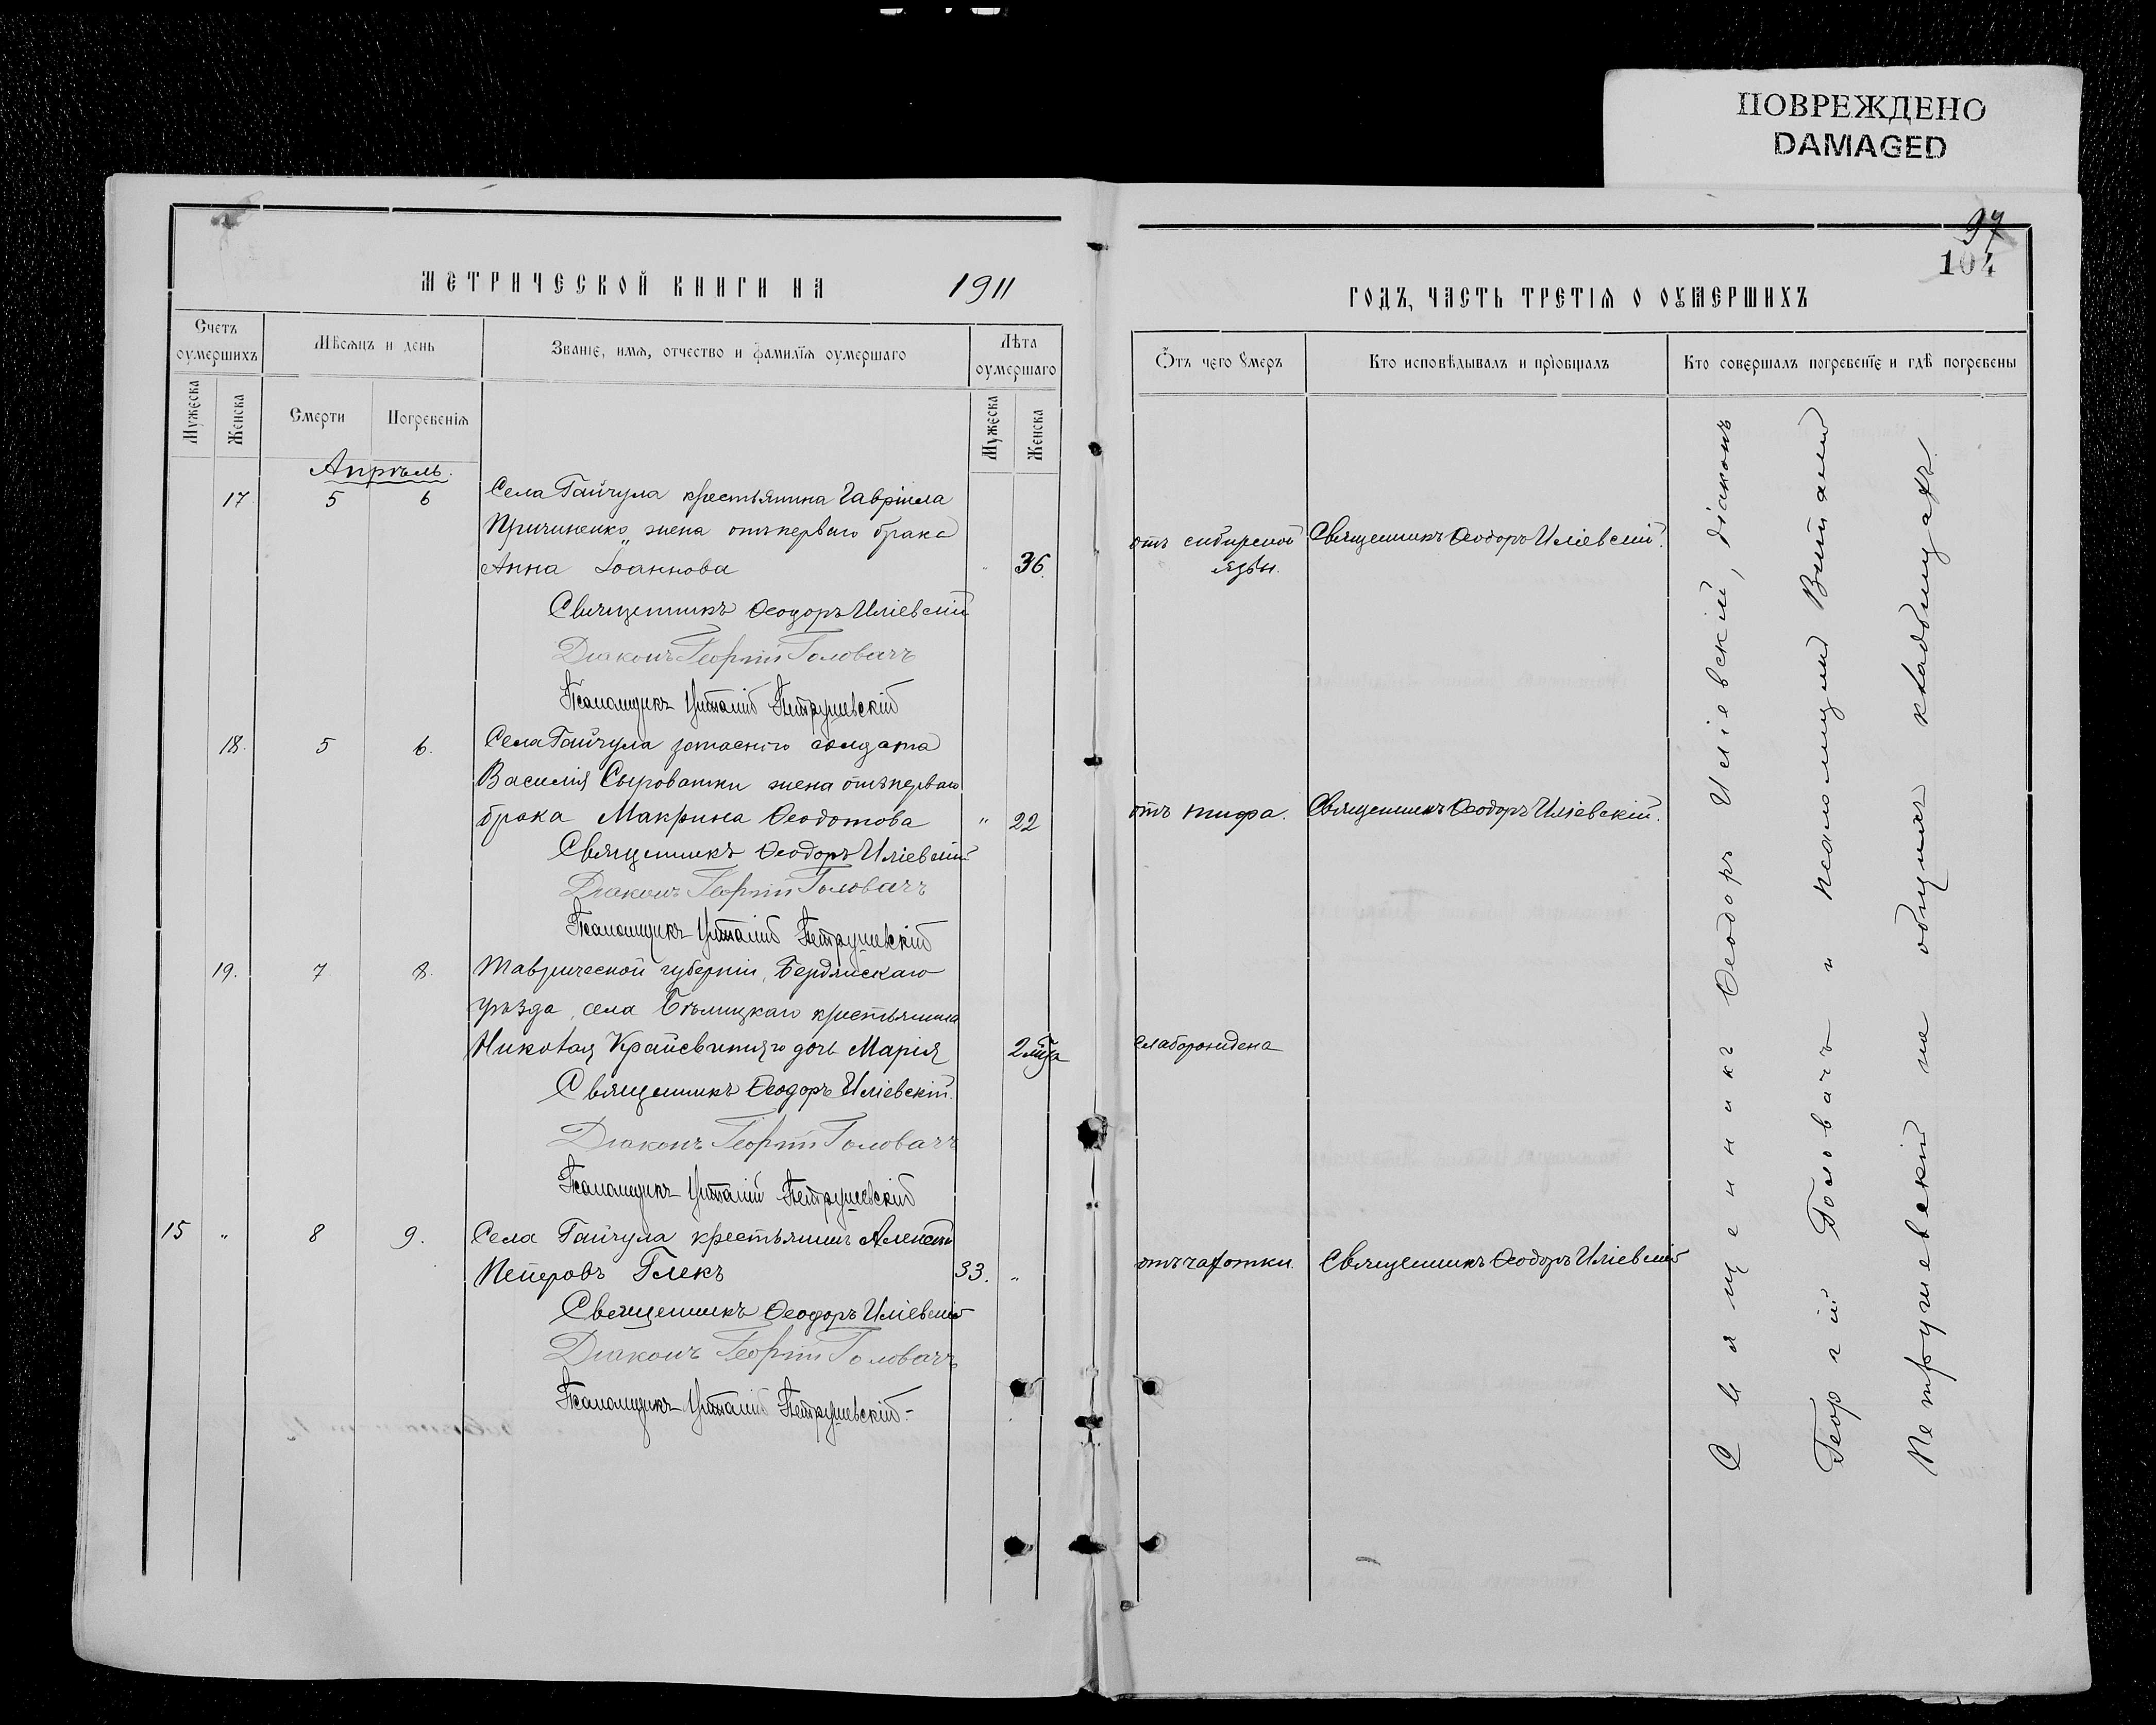 ПОВРЕЖДЕНО
DAMAGED
МЕТРИЧЕСКОЙ КНИГИ НА 1911
Счетъ оумершихъ
Мужеска
Женска
Мѣсяцъ и день
Смерти
Погребенія
Званіе, имя, отчество и фамилія оумершаго
Лѣта оумершаго
Мужеска
Женска
Апрѣль.
17 5 6 Села Гайчула крестьянина Гавріила
Причиненко, жена отъ перваго брака
Анна Іоаннова 36.
Священникъ Ѳеодоръ Иліевскій
Діаконъ Георгій Головачъ
Псаломщикъ Виталій Петрушевскій
18. 5 6. Села Гайчула запаснаго солдата
Василія Сыроватки жена отъ перваго
брака Макрина Ѳеодотова " 22
Священникъ Ѳеодоръ Иліевскій
Діаконъ Георгій Головачъ
Псаломщикъ Виталій Петрушевскій
19. 7 8. Таврической губерніи, Бердянскаго
уѣзда, села Бѣлицкаго крестьянина
Николая дочь Марія
Священникъ Ѳеодоръ Иліевскій.
Діаконъ Георгій Головачъ
Псаломщикъ Виталій Петрушевскій
15 " 8 9. Села Гайчула крестьянинъ Алексѣй
Петровъ Глекъ 33. "
Священникъ Ѳеодоръ Иліевскій
Діаконъ Георгій Головачъ
Псаломщикъ Виталій Петрушевскій.
97
104
ГОДЪ, ЧАСТЬ ТРЕТІЯ О ОУМЕРШИХЪ
Отъ чего умеръ
Кто исповѣдывалъ и пріобщалъ
Кто совершалъ погребеніе и гдѣ погребены
отъ сибирской Священникъ Ѳеодоръ Иліевскій.
язвы.
отъ тифа. Священникъ Ѳеодоръ Иліевскій.
слаборождена
отъ чахотки. Священникъ Ѳеодоръ Иліевскій
Священникъ Ѳеодоръ Иліевскій, діаконъ
Георгій Головачъ и псаломщикъ Виталій
Петрушевскій на общемъ кладбищахъ.